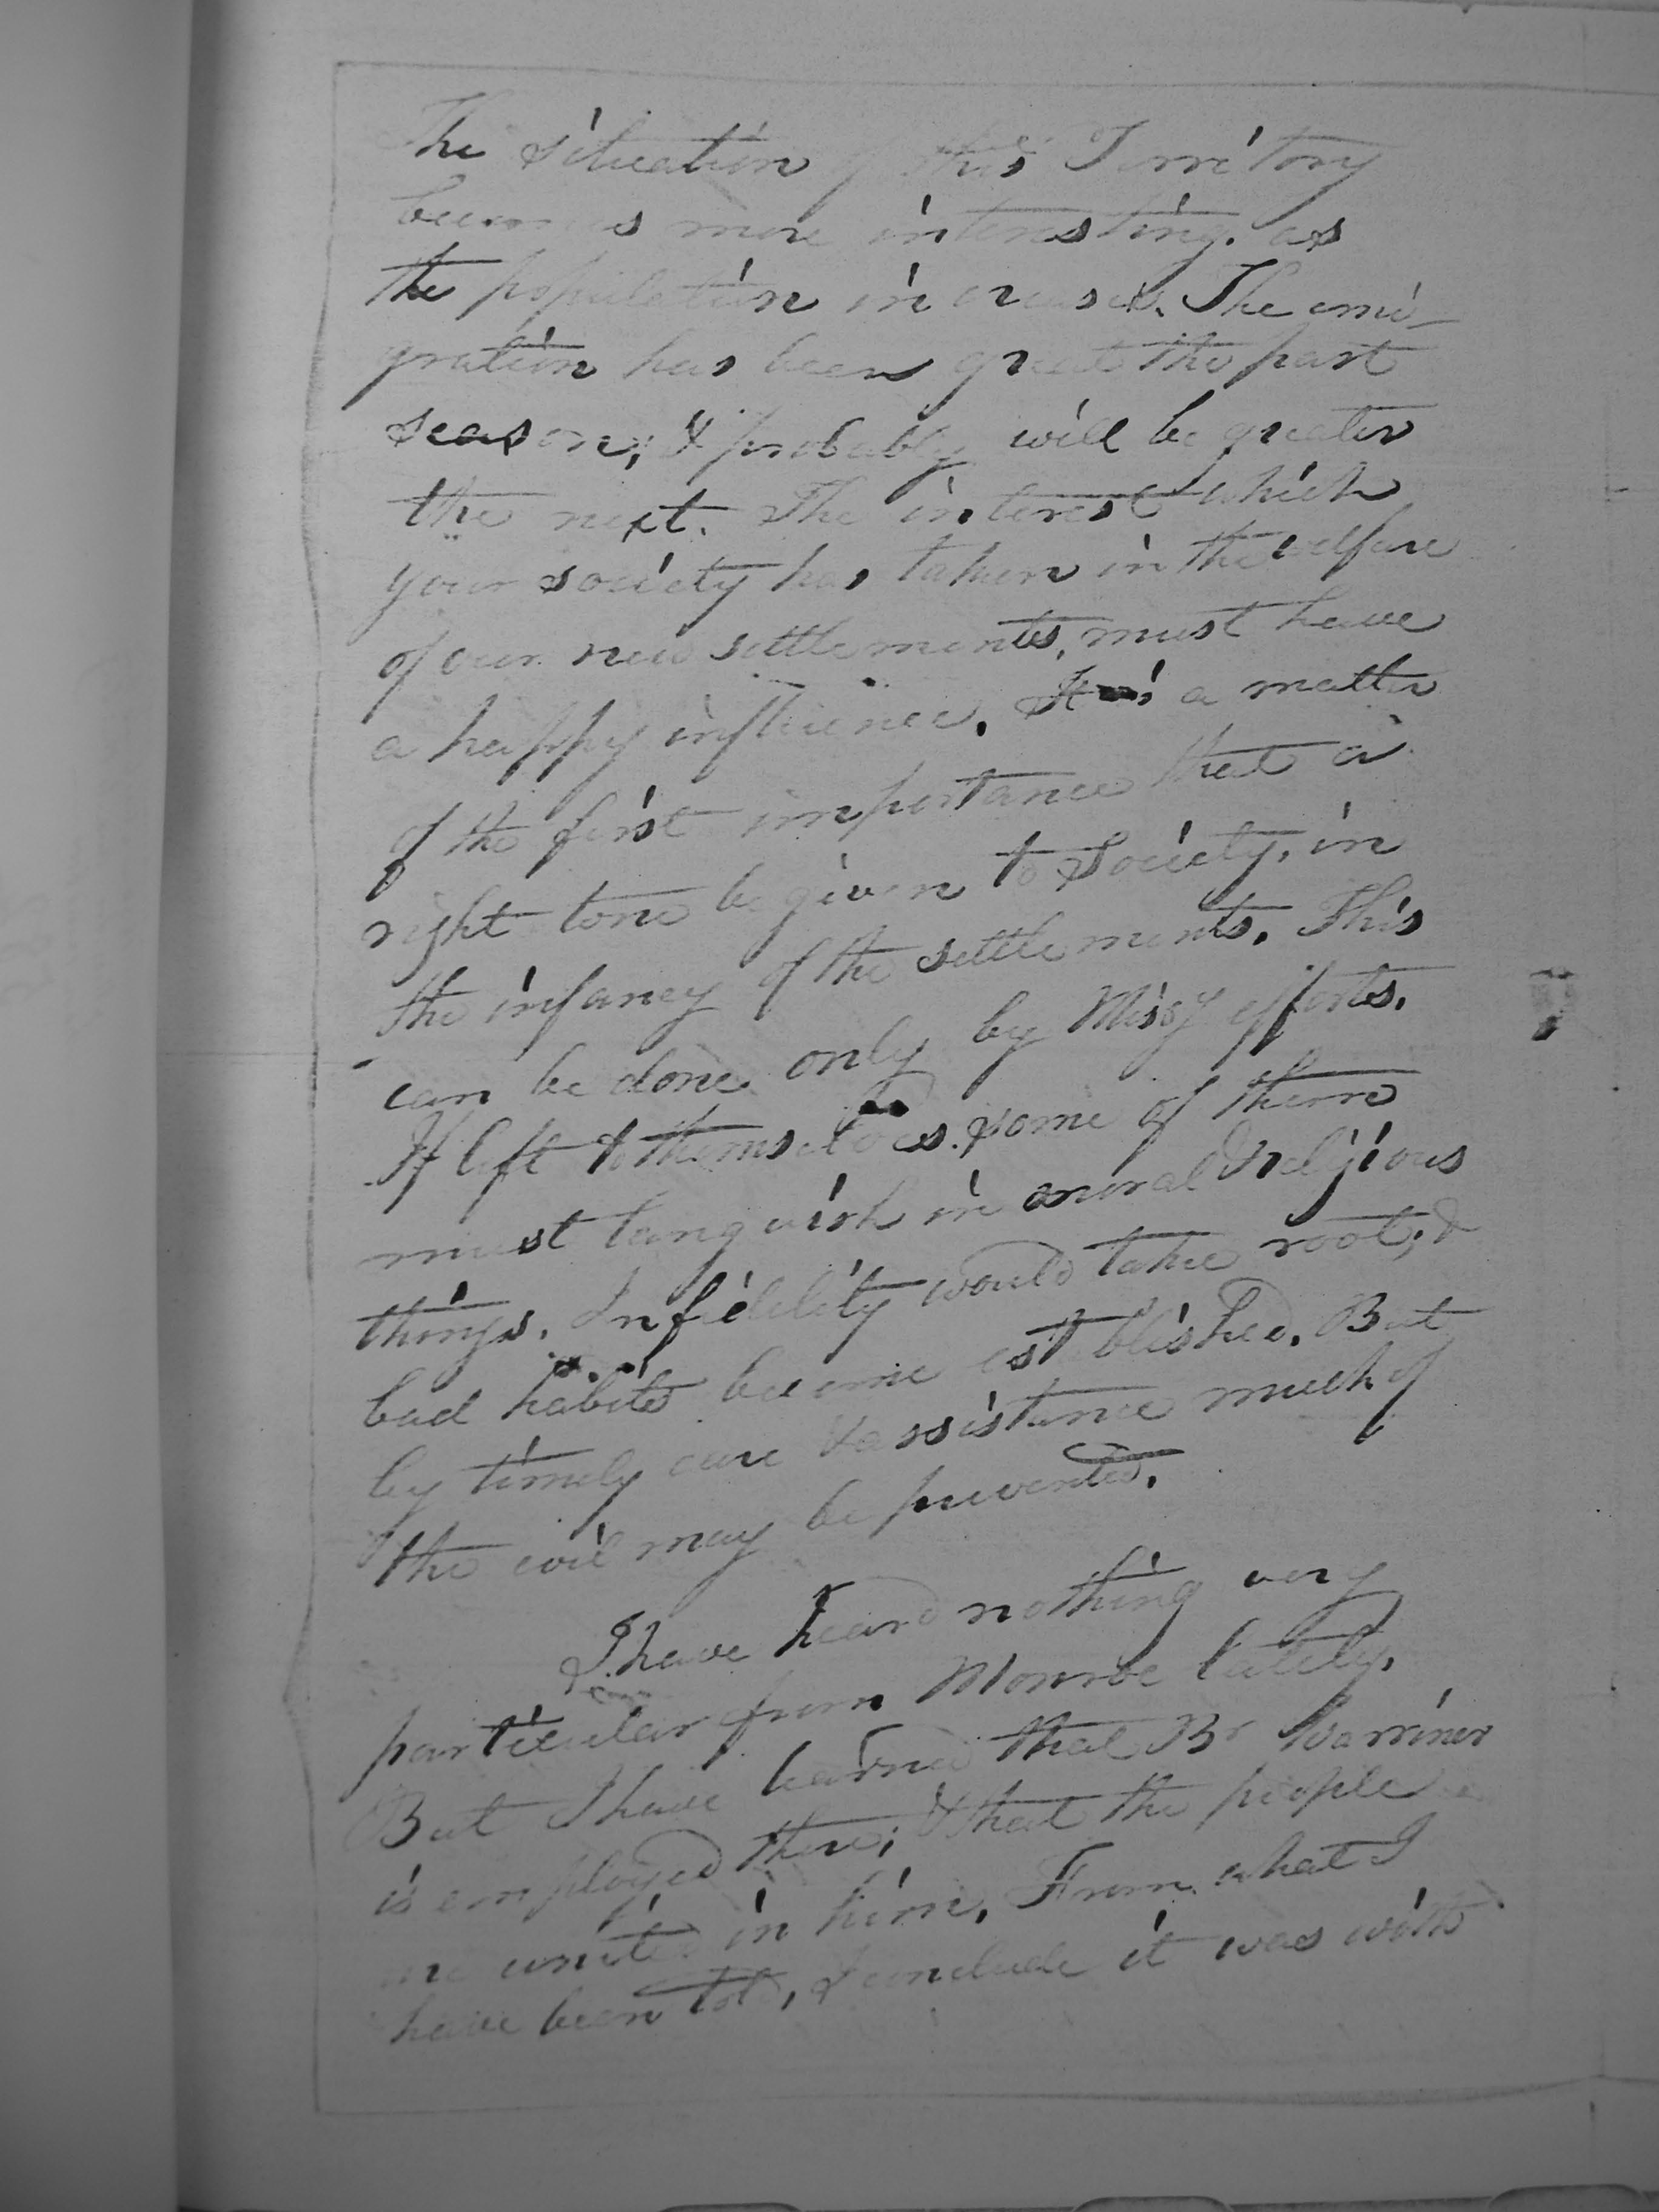 The situation of this Territory
becomes more interesting. as
the population increases. The emi-
gration has been great the past
season; & probably will be greater
the next. The interest which
your society has taken in the welfare
of our new settlements, must have
a happy influence. It is a matter
of the first importance that a
right tone be given to Society, in
the infancy of the settlements. This
can be done only by Missy efforts.
If left to themselves some of them
must languish in moral & religious
things. Infidelity would take root, &
bad habits become established. But
by timely care & assistance much of
the evil may be prevented.
I have heard nothing very
particular from Monroe lately.
But I have learned that Br Warriner
is employed there; & that the people
are united in him. From what I
have been told, I conclude it was with